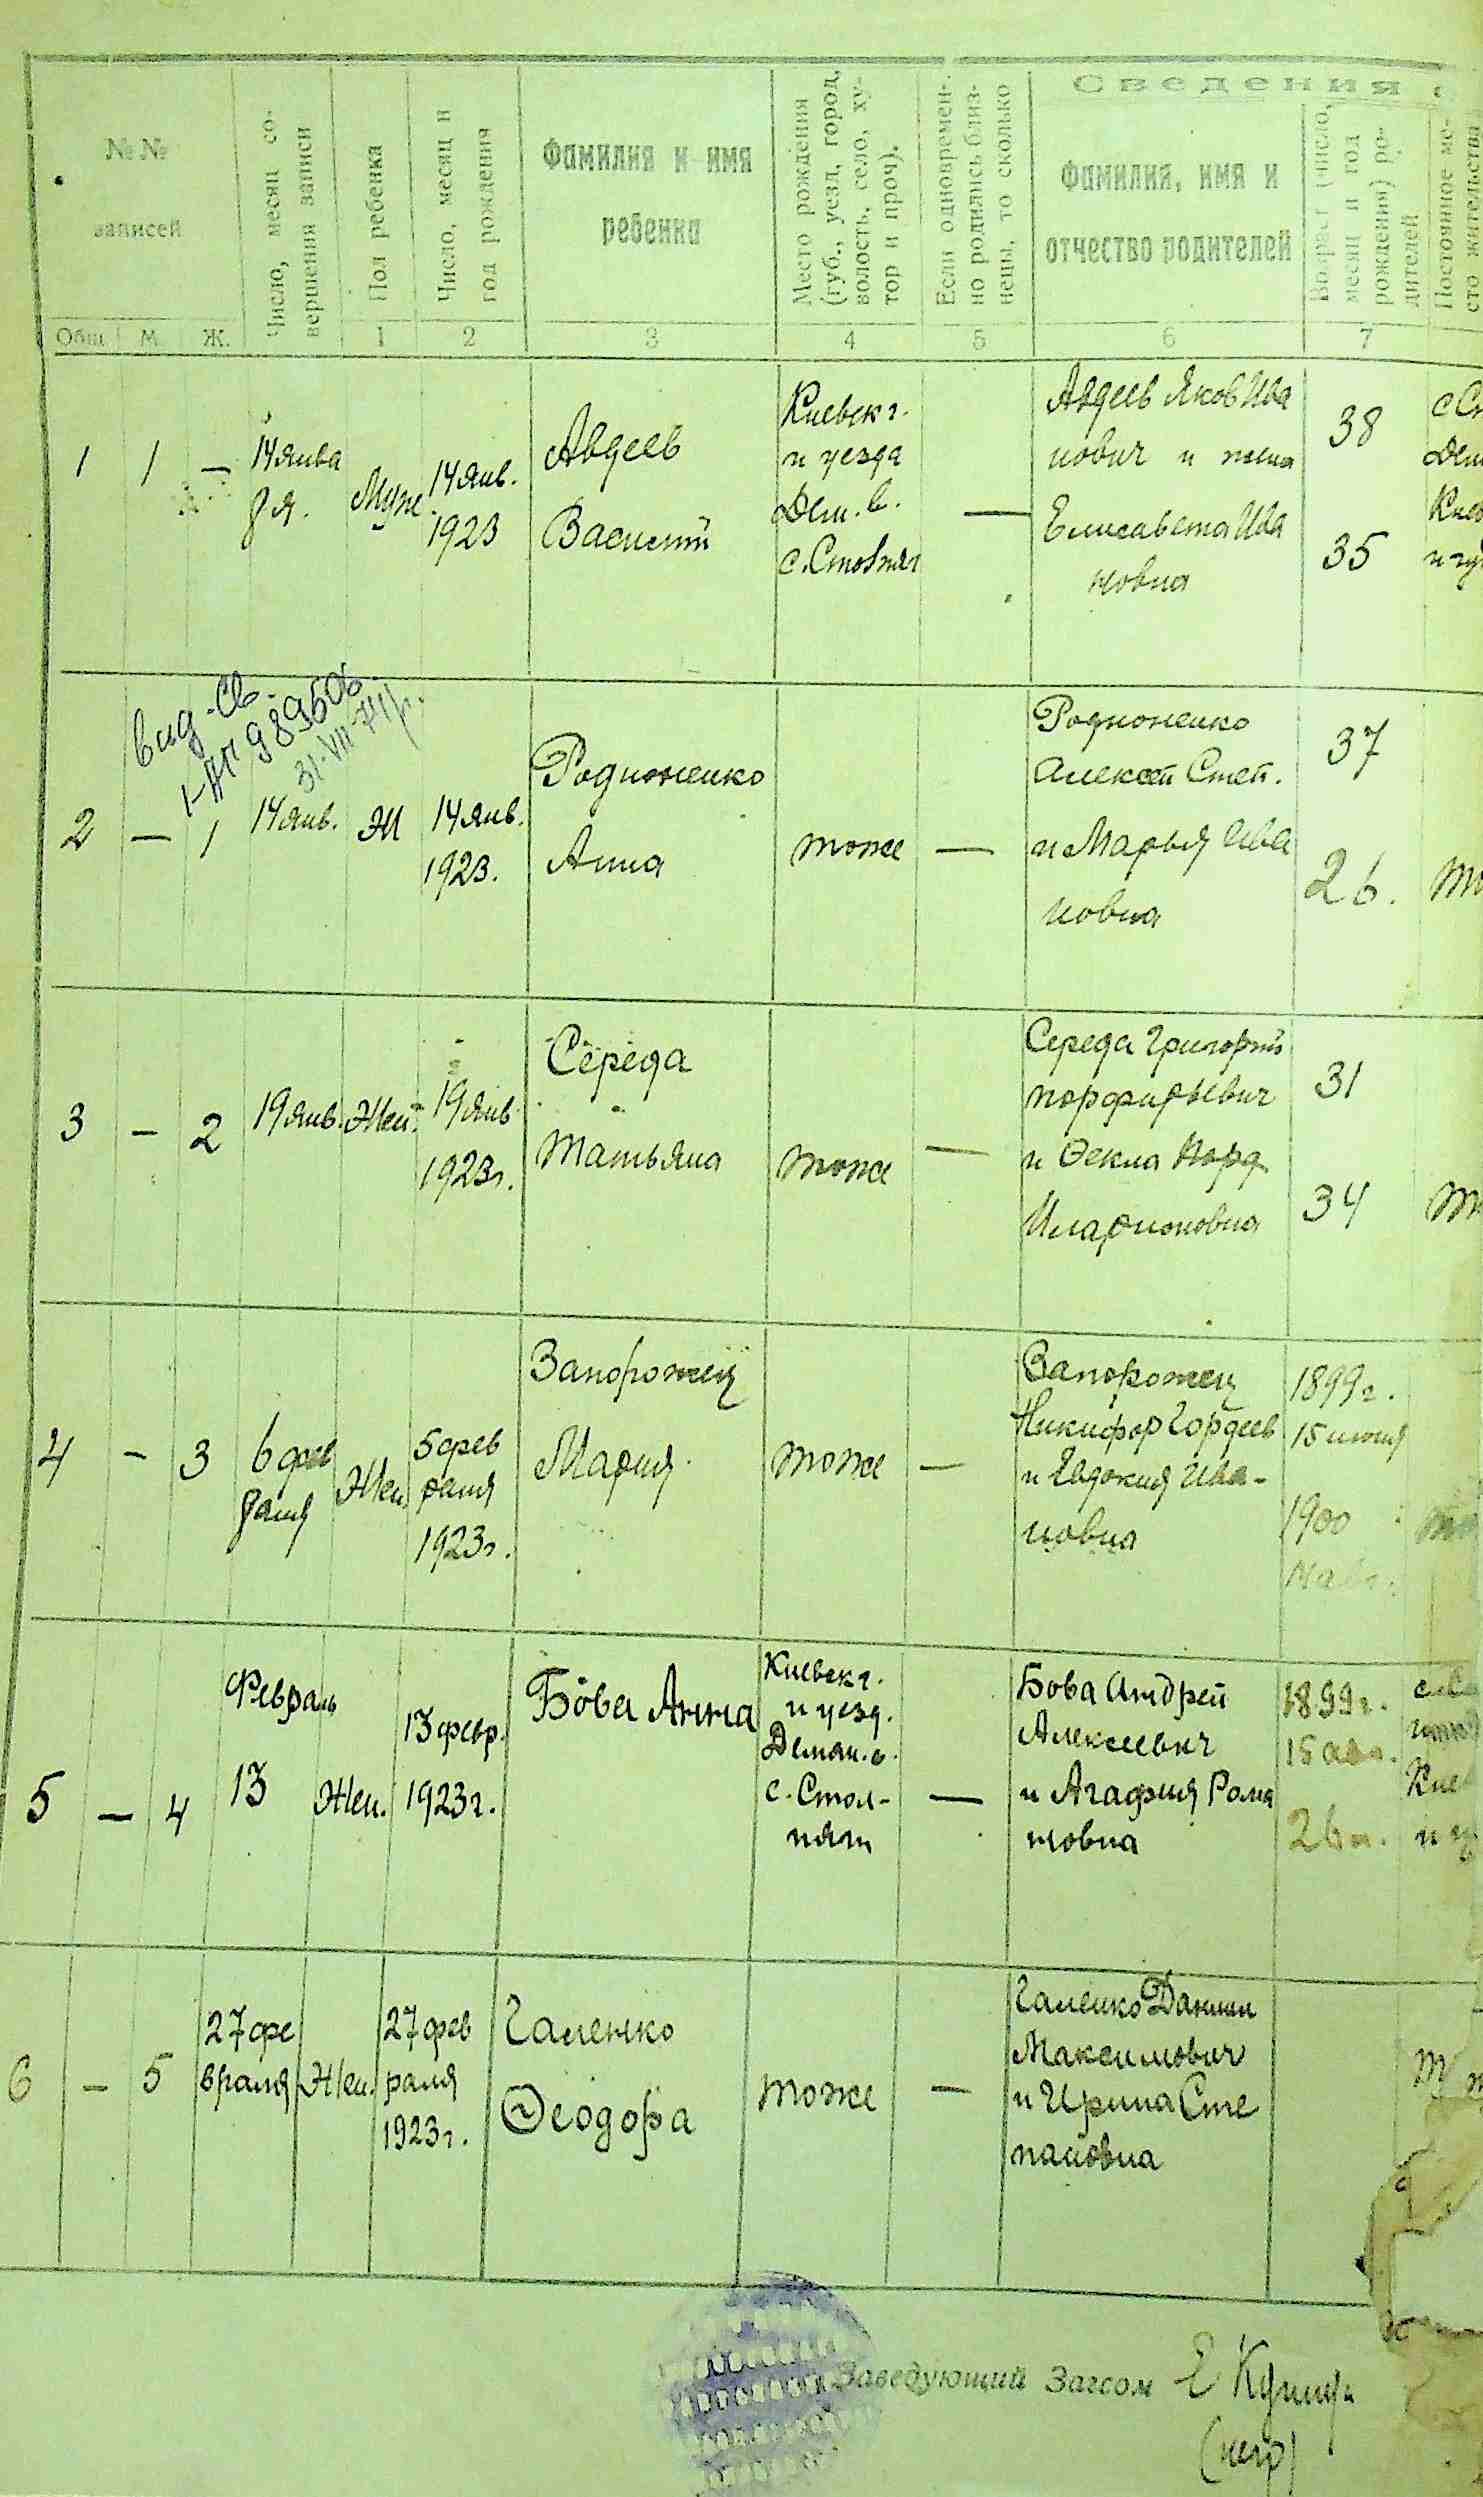 Сведения
№№
записей
Общ.
М.
Ж.
Число, месяц со-
вершения записи
Пол ребенка
1
Число, месяц и
год рождения
2
Фамилия и имя
ребенка
3
Место рождения
(губ., уезд, город,
волость, село, ху-
тор и проч).
4
Если одновремен-
но родились близ-
нецы, то сколько
5
Фамилия, имя и
отчество родителей
6
Возраст (число,
месяц и год
рождения) ро-
дителей
7
Постоянное ме-
сто жительства
1
1
—
14 янва
ря.
Муж.
14 янв.
1923
Авдеев
Василий
Киевск г.
и уезда
Дем. в.
—
Авдеев Яков Ива
нович и жена
Елисавета Ива
новна
38
35
вид. св.
31-VII-74г.
2
—
1
14 янв.
Ж
14 янв.
1923.
Родионенко
Анна
тоже
—
Родионенко
Алексей Степ.
и Марья Ива
новна
37
26.
3
—
2
19 янв.
Жен.
19 янв.
1923г.
Середа
Татьяна
тоже
—
Середа Григорий
Порфирьевич
и Фекла Порф
Иларионовна
31
34
4
—
3
6 фев
раля
Жен.
5 фев
раля
1923г.
Запорожец
Мария
тоже
—
Запорожец
Никифор Гордеев
и Евдокия Ива-
новна
1899г.
15 июня
1900
5
—
4
Февраль
13
Жен.
13 февр.
1923г.
Бова Анна
Киевск г.
и уезд.
Демян. в.
с. Стол-
пяги
—
Бова Андрей
Алексеевич
и Агафия Рома
новна
1899г.
6
—
5
27 фе
враля
Жен.
27 фев
раля
1923г.
Галенко
Феодора
тоже
—
Галенко Даниил
Максимович
и Ирина Сте
пановна
Заведующий Загсом